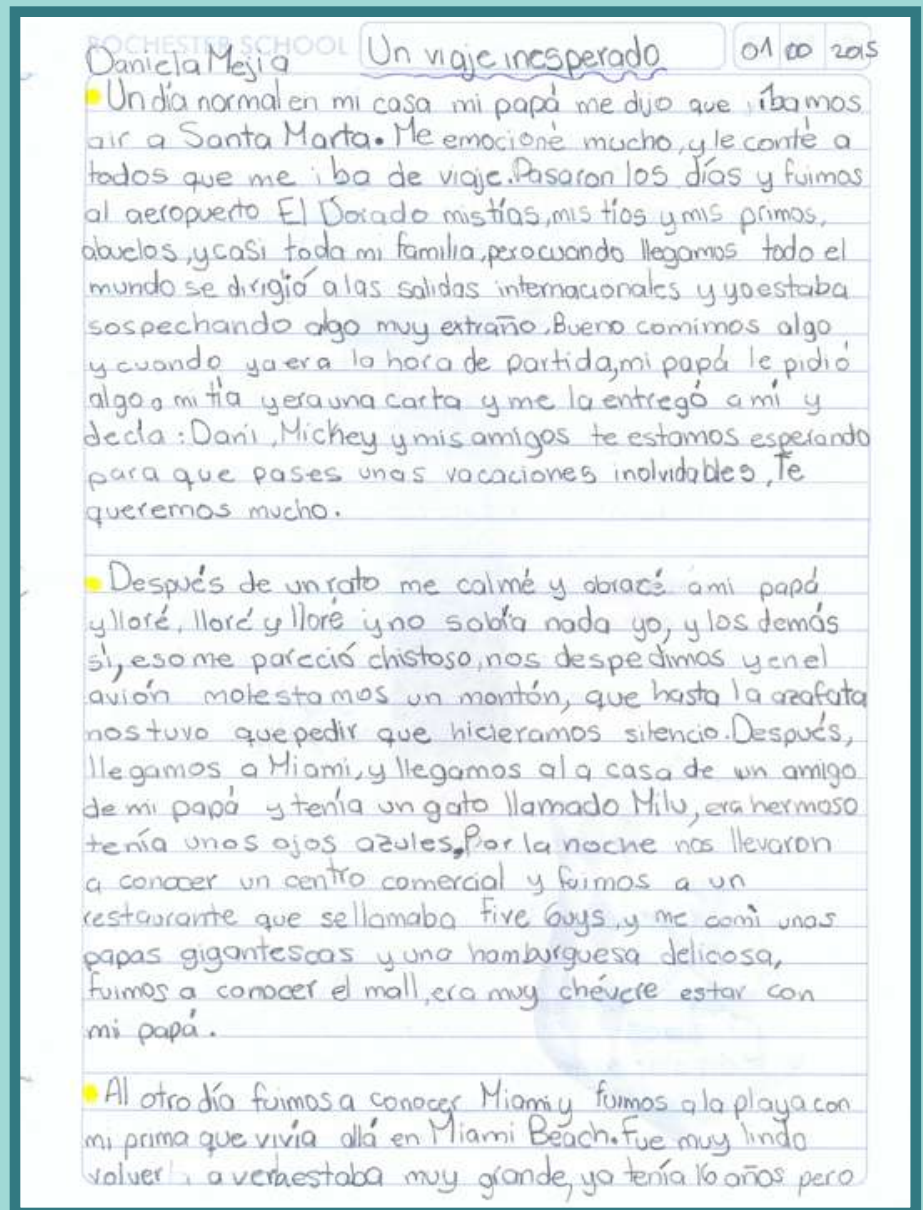 ROCHESTER SCHOOL
Daniela Mejia Un viaje inesperado 01 00 2015
Un día normal en mi casa mi papá me dijo que íbamos
air a Santa Marta. Me emocioné mucho, y le conté a
todos que me iba de viaje. Pasaron los días y fuimos
al aeropuerto El Dorado mis tías, mis tíos y mis primos,
abuelos, y casi toda mi familia, pero cuando llegamos todo el
mundo se dirigió a las salidas internacionales y yo estaba
sospechando algo muy extraño. Bueno comimos algo
y cuando ya era la hora de partida, mi papá le pidió
algo a mi tía y era una carta y me la entregó a mí y
decía: Dani, Mickey y mis amigos te estamos esperando
para que pases unas vacaciones inolvidables, Te
queremos mucho.
Después de un rato me calmé y abracé a mi papá
y lloré, lloré y lloré y no sabía nada yo, y los demás
sí, eso me pareció chistoso, nos despedimos y en el
avión molestamos un montón, que hasta la azafata
nos tuvo que pedir que hicieramos silencio. Después,
llegamos a Miami, y llegamos a la casa de un amigo
de mi papá y tenía un gato llamado Milu, era hermoso
tenía unos ojos azules. Por la noche nos llevaron
a conocer un centro comercial y fuimos a un
restaurante que se llamaba Five Guys, y me comì unas
papas gigantescas y una hamburguesa deliciosa,
fuimos a conocer el mall, era muy chévere estar con
mi papá.
Al otro día fuimos a conocer Miami y fuimos a la playa con
mi prima que vivía allá en Miami Beach. Fue muy lindo
volver a verla estaba muy grande, ya tenía 16 años pero